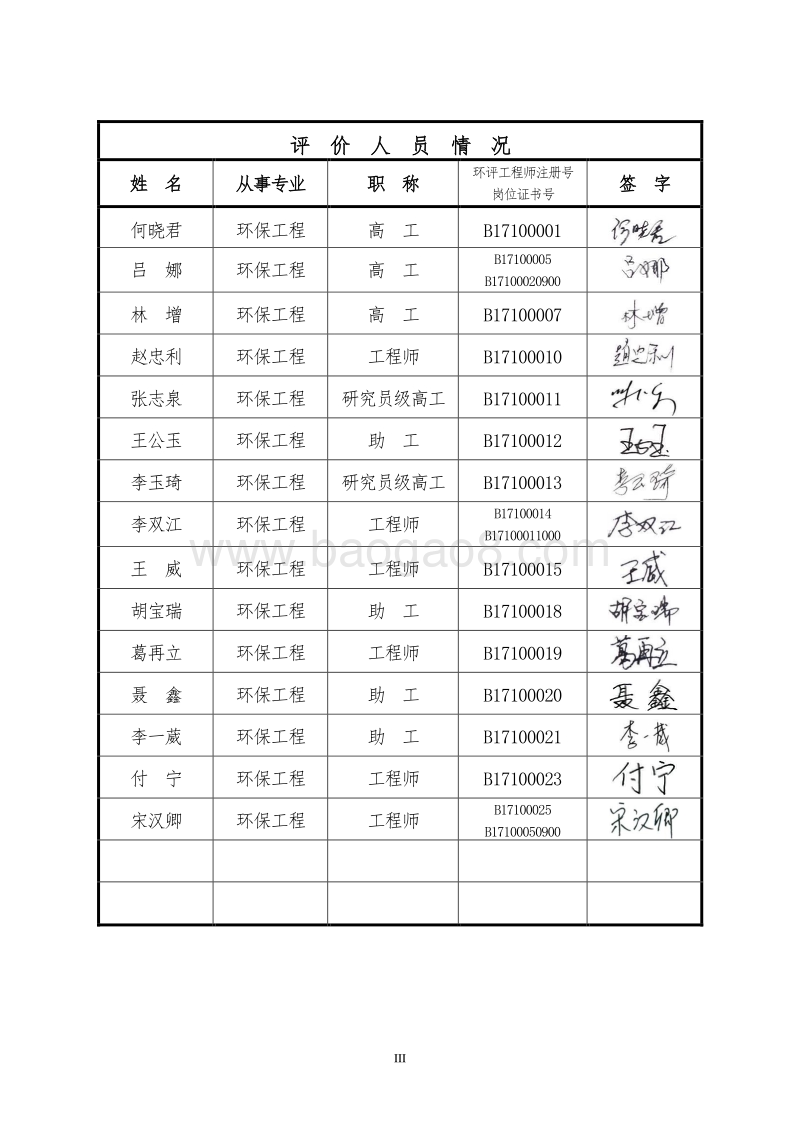 评 价 人 员 情 况
姓 名 从事专业 职 称 环评工程师注册号 岗位证书号 签 字
何晓君 环保工程 高 工 B17100001 何晓君
吕 娜 环保工程 高 工 B17100005 B17100020900 吕娜
林 增 环保工程 高 工 B17100007 林增
赵忠利 环保工程 工程师 B17100010 赵忠利
张志泉 环保工程 研究员级高工 B17100011
王公玉 环保工程 助 工 B17100012 王公玉
李玉琦 环保工程 研究员级高工 B17100013 李玉琦
李双江 环保工程 工程师 B17100014 B17100011000 李双江
王 威 环保工程 工程师 B17100015 王威
胡宝瑞 环保工程 助 工 B17100018 胡宝瑞
葛再立 环保工程 工程师 B17100019 葛再立
聂 鑫 环保工程 助 工 B17100020 聂鑫
李一葳 环保工程 助 工 B17100021 李一葳
付 宁 环保工程 工程师 B17100023 付宁
宋汉卿 环保工程 工程师 B17100025 B17100050900 宋汉卿
www.baogao8.com
III